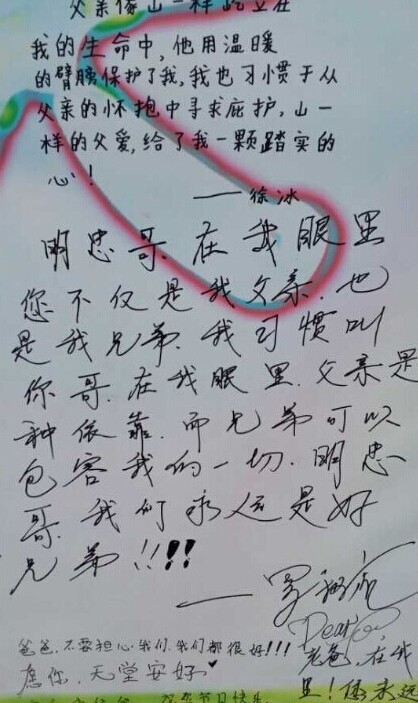 父亲像山一样屹立在
我的生命中,他用温暖
的臂膀保护了我,我也习惯于从
父亲的怀抱中寻求庇护,山一
样的父爱,给了我一颗踏实的
心!
——徐冰
明忠哥.在我眼里
您不仅是我父亲.也
是我兄弟.我习惯叫
你哥.在我眼里.父亲是
种依靠.而兄弟可以
包容我的一切.明忠
哥.我们永远是好
兄弟!!!!
爸爸,不要担心我们,我们都很好!!!
愿你,天堂安好♥
Dear
老爸,在我
里!你永远